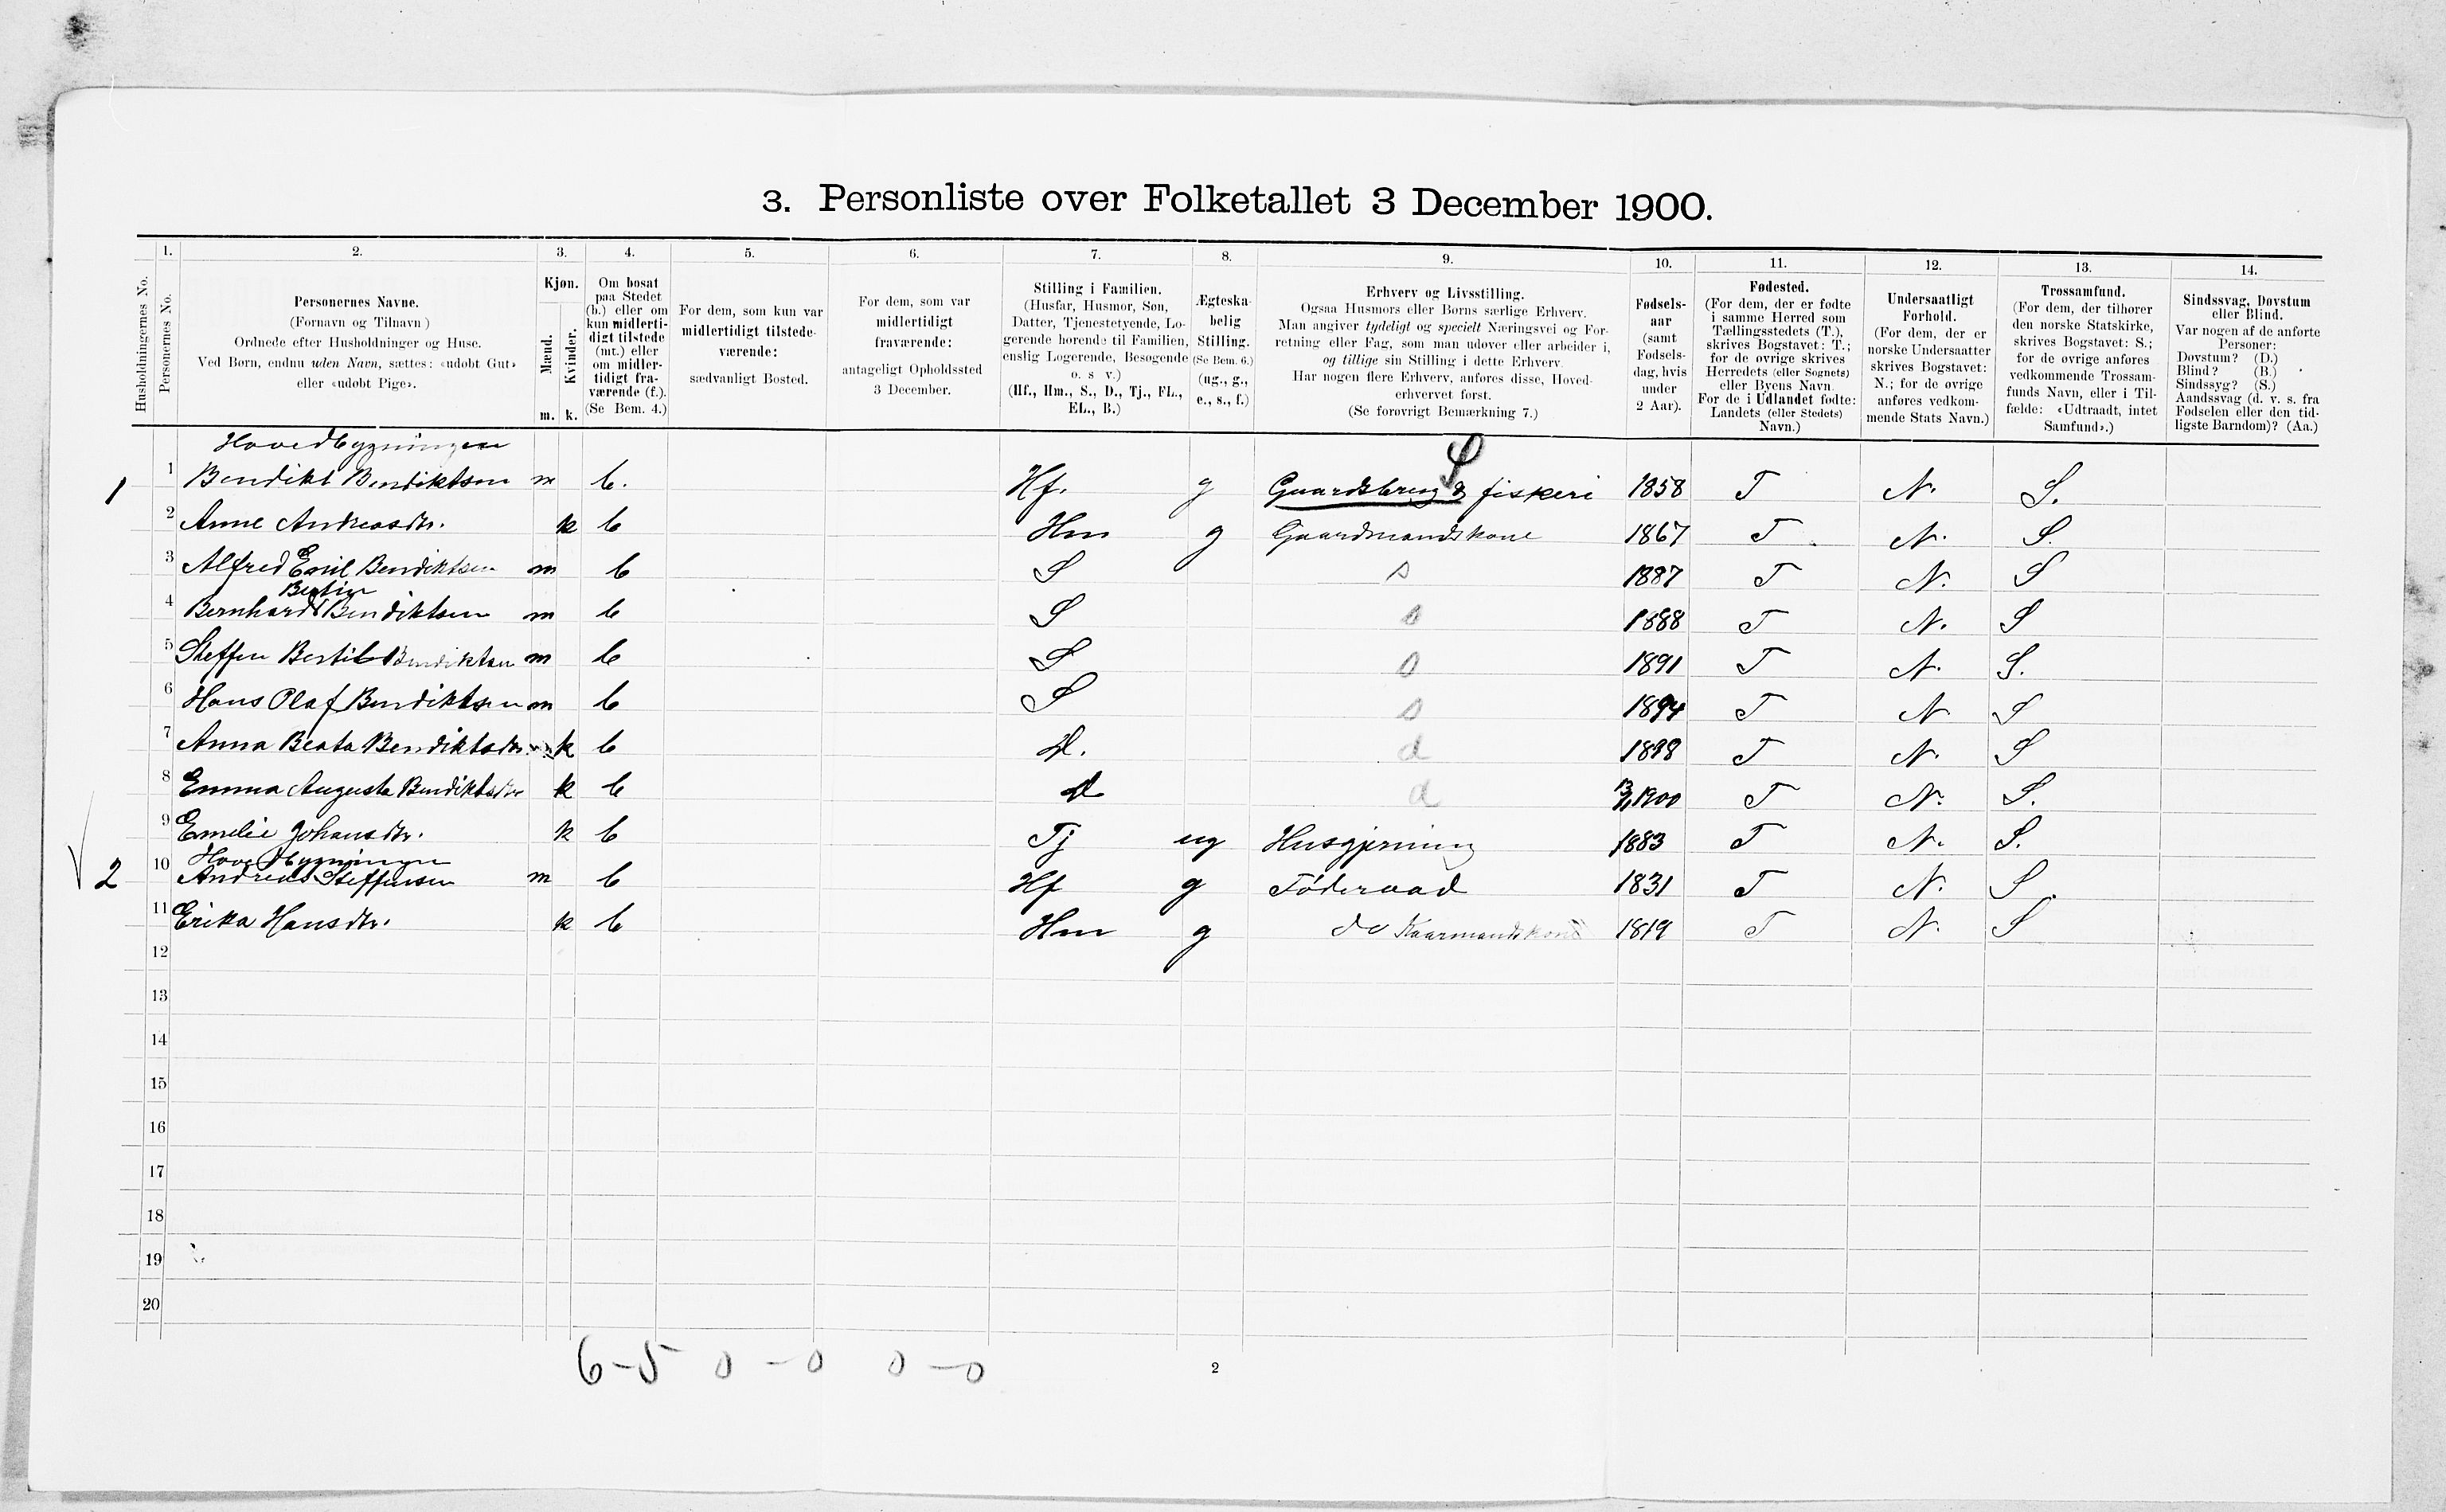 3. Personliste over Folketallet 3 December 1900.
1. 2. 3. 4. 5. 6. 7. 8. 9. 10. 11. 12. 13. 14.
Husholdningernes No.
Personernes No.
Personernes Navne.
(Fornavn og Tilnavn )
Ordnede efter Husholdninger og Huse.
Ved Børn, endnu uden Navn, sættes: «udøbt Gut»
eller «udøbt Pige».
Kjøn.
Mænd.
Kvinder.
m. k.
Om bosat
paa Stedet
(b.) eller om
kun midlerti-
digt tilstede
(mt.) eller
om midler-
tidigt fra-
værende (f.).
(Se Bem. 4.)
For dem, som kun var
midlertidigt tilstede-
værende:
sædvanligt Bosted.
For dem, som var
midlertidigt
fraværende:
antageligt Opholdssted
3 December.
Stilling i Familien.
(Husfar, Husmor, Søn,
Datter, Tjenestetyende, Lo-
gerende hørende til Familien,
enslig Logerende, Besøgende
o. s v.)
(Hf., Hm., S., D., Tj., FL.,
EL., B.)
Ægteska-
belig
Stilling.
(Se Bem. 6.)
(ug., g.,
e., s., f.)
Erhverv og Livsstilling.
Ogsaa Husmors eller Børns særlige Erhverv.
Man angiver tydeligt og specielt Næringsvei og For-
retning eller Fag, som man udøver eller arbeider i,
og tillige sin Stilling i dette Erhverv.
Har nogen flere Erhverv, anføres disse, Hoved-
erhvervet først.
(Se forøvrigt Bemærkning 7.)
Fødsels-
aar
(samt
Fødsels-
dag, hvis
under
2 Aar).
Fødested.
(For dem, der er fødte
i samme Herred som
Tællingsstedets (T.),
skrives Bogstavet: T.;
for de øvrige skrives
Herredets (eller Sognets)
eller Byens Navn.
For de i Udlandet fødte:
Landets (eller Stedets)
Navn.)
Undersaatligt
Forhold.
(For dem, der er
norske Undersaatter
skrives Bogstavet:
N.; for de øvrige
anføres vedkom-
mende Stats Navn.)
Trossamfund.
(For dem, der tilhører
den norske Statskirke,
skrives Bogstavet: S.;
for de øvrige anføres
vedkommende Trossam-
funds Navn, eller i Til-
fælde: «Udtraadt, intet
Samfund».)
Sindssvag, Døvstum
eller Blind.
Var nogen af de anførte
Personer:
Døvstum? (D.)
Blind? (B.)
Sindssyg? (S.)
Aandssvag (d. v. s. fra
Fødselen eller den tid-
ligste Barndom)? (Aa.)
Hovedbygningen
S
1 1 Bendikt Bendiktsen m b. Hf. g Gaardsbrug & fiskeri 1858 T N. S.
2 Anne Andreasdtr. k b Hm g Gaardmandskone 1867 T N. S.
3 Alfred Emil Bendiktsen m b S s 1887 T N. S
4 Bernhard Bendiktsen m b S s 1888 T N. S
5 Steffen Bertil Bendiktsen m b S s 1891 T N. S.
6 Hans Olaf Bendiktsen m b S s 1894 T N S
7 Anna Beata Bendiktsdtr. k b D. d 1898 T N. S
8 Emma Augusta Bendiktsdtr k b d d 1900 T N. S.
9 Emelie Johansdtr. k b Tj ug Husgjerning 1883 T N. S.
Hovedbygningen
2 10 Andreas Steffensen m b Hf g Føderaad 1831 T N. S.
11 Erika Hansdtr. k b Hm g do Kaarmandskone 1819 T N. S
12
13
14
15
16
17
18
19
20
6-5 0-0 0-0
2